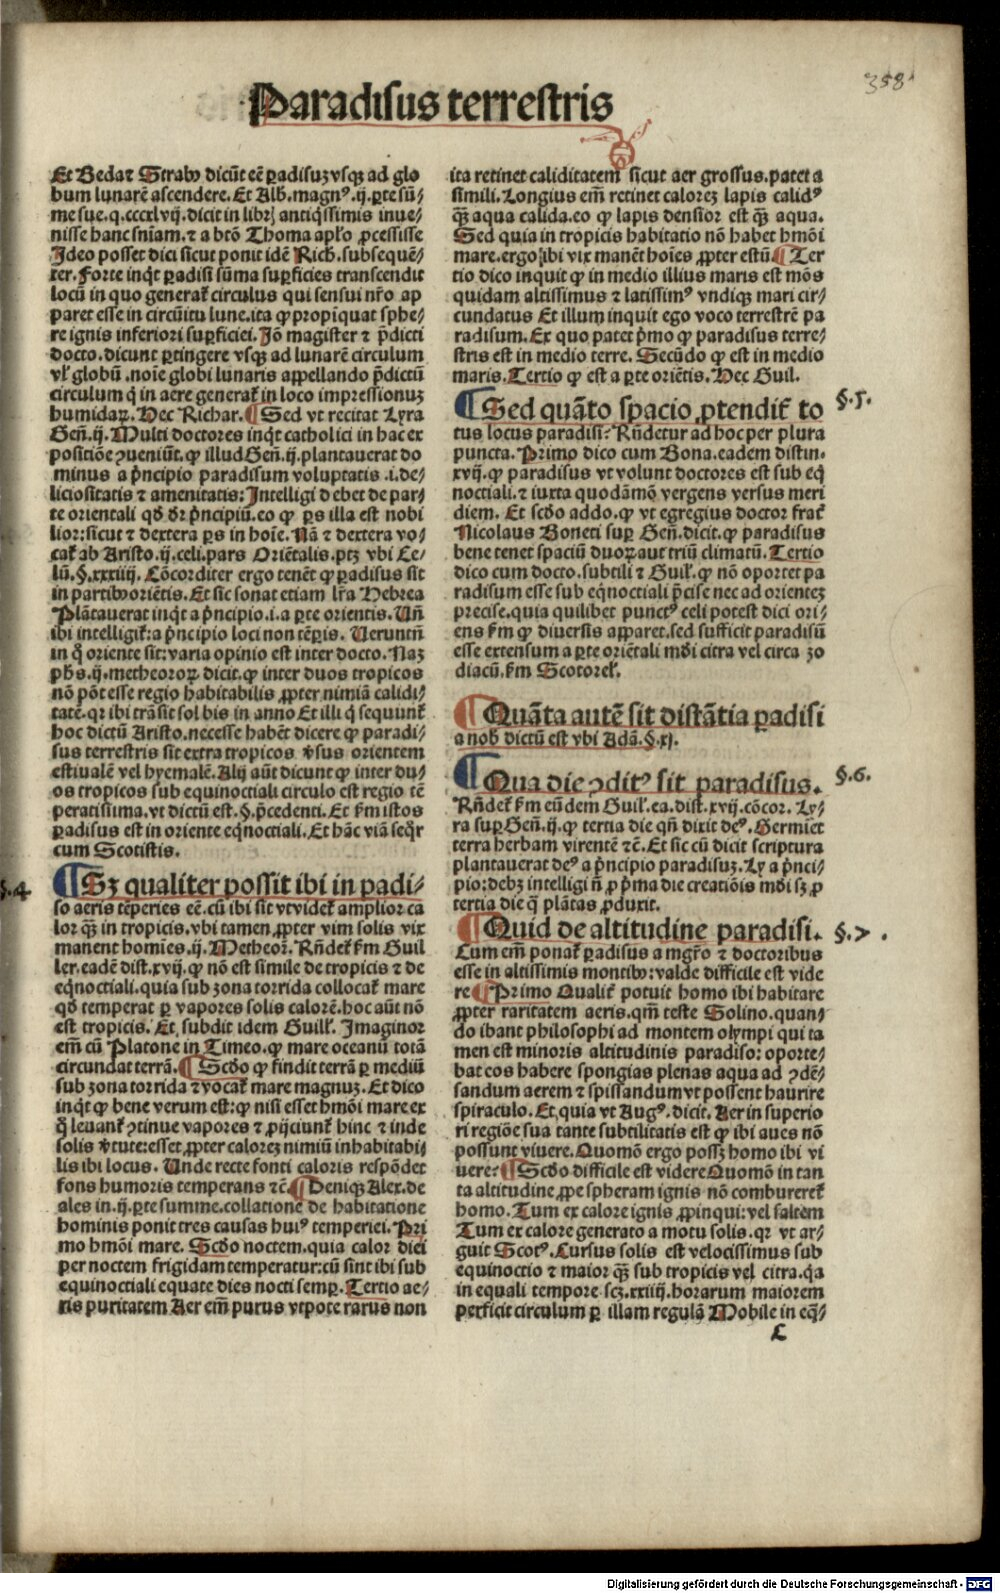 358
Paradisus terrestris
Et Beda ⁊ Strabo dicūt eē ꝑadisuz vsqꝫ ad glo
bum lunarē ascendere. Et Alb. magnꝰ .ij. ꝑte sū⸗
me sue. q. cccxlvij. dicit in librꝭ antiqssimis inue⸗
nisse hanc sniam. ⁊ a btō Thoma aplo ꝓcessisse
Ideo posset dici sicut ponit idē Rich. subsequē⸗
ter. Forte inqt ꝑadisi sūma suꝑficies transcendit
locū in quo generaẗ circulus qui sensui nro ap
paret esse in circūitu lune. ita ꝙ propiquat sphe⸗
re ignis inferiori suꝑficiei. Jō magister ⁊ p̄dicti
docto. dicunt ꝑtingere vsqꝫ ad lunarē circulum
vl globū .noīe globi lunaris appellando p̄dictū
circulum q̇ in aere generaẗ in loco impressionuz
humidaꝝ. Hec Richar. ¶ Sed vt recitat Lyra
Geñ. ij. Multi doctores inqt catholici in hac ex
positiōe ꝯueniūt. ꝙ illud Geñ. ij. plantauerat do
minus a pͥncipio paradisum voluptatis .i. de⸗
liciositatis ⁊ amenitatis: Intelligi debet de par⸗
te orientali qd dr pͥncipiū. eo ꝙ ꝑs illa est nobi
lior: sicut ⁊ dextera ꝑs in hoīe. Nā ⁊ dextera vo⸗
caẗ ab Aristo. ij. celi. pars Oriētalis. ptꝫ vbi Ce⸗
lū. §. xxxiiij. Cōcorditer ergo tenēt ꝙ ꝑadisus sit
in partibꝰ oriētis. Et sic sonat etiam lra Hebrea
Plātauerat inqt a pͥncipio .i. a ꝑte orientis. Uñ
ibi intelligiẗ: a pͥncipio loci non tēꝑis. Uerunt̄n
in q̊ oriente sit: varia opinio est inter docto. Naꝫ
phs. ij. metheoroꝝ dicit. ꝙ inter duos tropicos
nō pōt esse regio habitabilis ꝓpter nimiā calidi⸗
tatē. qꝛ ibi trāsit sol bis in anno Et illi q̇ sequunẗ
hoc dictū Aristo. necesse habēt dicere ꝙ paradi⸗
sus terrestris sit extra tropicos ꝟsus orientem
estiualē vel hyemalē. Alij aūt dicunt ꝙ inter du⸗
os tropicos sub equinoctiali circulo est regio tē
peratissima. vt dictū est. §. p̄cedenti. Et ẜm istos
ꝑadisus est in oriente eq̇noctiali. Et hāc viā seq̇r
cum Scotistis.
§.4
¶ Sꝫ qualiter possit ibi in padi⸗
so aeris tēperies eē. cū ibi sit vt videẗ amplior ca
lor q̄ꝫ in tropicis. vbi tamen ꝓpter vim solis vix
manent homīes. ij. Metheoꝝ. Rñdeẗ ẜm Guil
ler. eadē dist. xvij. ꝙ nō est simile de tropicis ⁊ de
eq̇noctiali. quia sub zona torrida collocaẗ mare
qd temperat ꝑ vapores solis calorē. hoc aūt nō
est tropicis. Et subdit idem Guill. Imaginor
em̄ cū Platone in Timeo. ꝙ mare oceanū totā
circundat terrā. ¶ Scdo ꝙ findit terrā ꝑ mediū
sub zona torrida ⁊ vocaẗ mare magnuꝫ. Et dico
inqt ꝙ bene verum est: ꝙ nisi esset hmōi mare ex
q̊ leuanẗ ꝯtinue vapores ⁊ ꝓijciunẗ hinc ⁊ inde
solis ꝟtute: esset ꝓpter caloreꝫ nimiū inhabitabi⸗
lis ibi locus. Unde recte fonti caloris respōdet
fons humoris temperans ⁊ē. ¶ Deniqꝫ Alex. de
ales in .ij. ꝑte summe. collatione de habitatione
hominis ponit tres causas huiꝰ temperiei. Pri
mo hmōi mare. Scdo noctem. quia calor diei
per noctem frigidam temperatur: cū sint ibi sub
equinoctiali equate dies nocti semꝑ. Tertio ae⸗
ris puritatem Aer em̄ purus vtpote rarus non
ita retinet caliditatem sicut aer grossus. patet a
simili. Longius em̄ retinet caloreꝫ lapis calidꝰ
q̄ꝫ aqua calida. eo ꝙ lapis densior est q̄ꝫ aqua.
Sed quia in tropicis habitatio nō habet hmōi
mare. ergo ibi vix manēt hoīes ꝓpter estū. ¶ Ter
tio dico inquit ꝙ in medio illius maris est mōs
quidam altissimus ⁊ latissimꝰ vndiqꝫ mari cir⸗
cundatus Et illum inquit ego voco terrestrē pa
radisum. Ex quo patet pͥmo ꝙ paradisus terre⸗
stris est in medio terre. Secūdo ꝙ est in medio
maris. Tertio ꝙ est a ꝑte oriētis. Hec Guil.
¶ Sed quāto spacio ꝓtendiẗ to
§.5.
tus locus paradisi? Rñdetur ad hoc per plura
puncta. Primo dico cum Bona. eadem distin⸗
xvij. ꝙ paradisus vt volunt doctores est sub eq̇
noctiali. ⁊ iuxta quodāmō vergens versus meri
diem. Et scdo addo. ꝙ vt egregius doctor fraẗ
Nicolaus Boneti suꝑ Geñ. dicit. ꝙ paradisus
bene tenet spaciū duoꝝ aut triū climatū. Tertio
dico cum docto. subtili ⁊ Guil. ꝙ nō oportet pa
radisum esse sub eq̇noctiali p̄cise nec ad orienteꝫ
precise. quia quilibet punctꝰ celi potest dici ori⸗
ens ẜm ꝙ diuersis apparet. sed sufficit paradisū
esse extensum a ꝑte oriētali mdi citra vel circa zo
diacū. ẜm Scotorel.
¶ Quāta autē sit distātia ꝑadisi
a nob dictū est vbi Adā. §. xj.
¶ Qua die ꝯditꝰ sit paradisus.
§.6.
Rñdeẗ ẜm eūdem Guil. ea. dist. xvij. cōcor. Ly⸗
ra suꝑ Geñ. ij. ꝙ tertia die qñ dixit deꝰ. Germiēt
terra herbam virentē ⁊ē. Et sic cū dicit scriptura
plantauerat deꝰ a pͥncipio paradisuꝫ. Ly a pͥnci⸗
pio: debꝫ intelligi ñ ꝓ pͥma die creatiōis mdi sꝫ ꝓ
tertia die q̇ plātas ꝓduxit.
¶ Quid de altitudine paradisi.
§.7.
Cum em̄ ponaẗ ꝑadisus a mgro ⁊ doctoribus
esse in altissimis montibꝰ: valde difficile est vide
re ¶ Primo Qualiẗ potuit homo ibi habitare
ꝓpter raritatem aeris. qm̄ teste Solino. quan⸗
do ibant philosophi ad montem olympi qui ta
men est minoris altitudinis paradiso: oporte⸗
bat eos habere spongias plenas aqua ad ꝯdē⸗
sandum aerem ⁊ spissandum vt possent haurire
spiraculo. Et quia vt Augꝰ. dicit. Aer in superio
ri regiōe sua tante subtilitatis est ꝙ ibi aues nō
possunt viuere. Quomō ergo possꝫ homo ibi vi
uere? ¶ Scdo difficile est videre Quomō in tan
ta altitudine ꝓpe spheram ignis nō comburereẗ
homo. Tum ex calore ignis ꝓpinqui: vel saltem
Tum ex calore generato a motu solis. qꝛ vt ar⸗
guit Scotꝰ. Cursus solis est velocissimus sub
equinoctio ⁊ maior q̄ꝫ sub tropicis vel citra. q̇a
in equali tempore scꝫ. xxiiij. horarum maiorem
perficit circulum ꝑ illam regulā Mobile in eq̄⸗
C
Digitalisierung gefördert durch die Deutsche Forschungsgemeinschaft - DFG